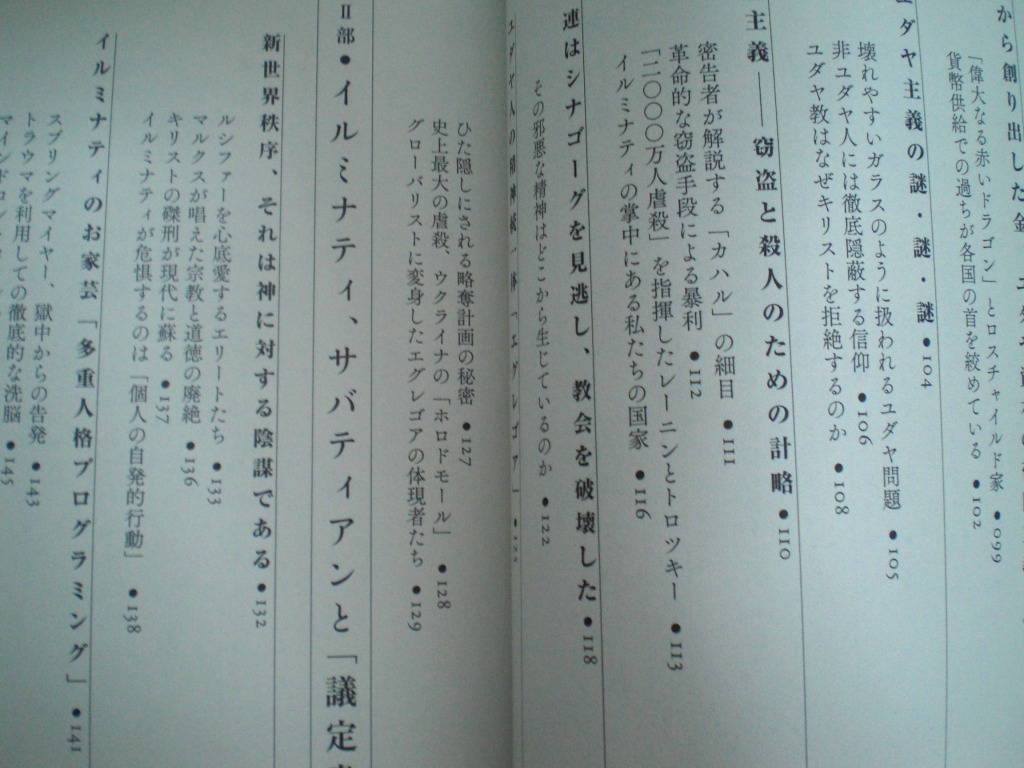 から創り出した金
「偉大なる赤いドラゴン」とロスチャイルド家 ●099
貨幣供給での過ちが各国の首を絞めている ●102
ユダヤ主義の謎・謎・謎 ●104
壊れやすいガラスのように扱われるユダヤ問題 ●105
非ユダヤ人には徹底隠蔽する信仰 ●106
ユダヤ教はなぜキリストを拒絶するのか ●108
主義――窃盗と殺人のための計略 ●110
密告者が解説する「カハル」の細目 ●111
革命的な窃盗手段による暴利 ●112
「二〇〇〇万人虐殺」を指揮したレーニンとトロツキー ●113
イルミナティの掌中にある私たちの国家 ●116
連はシナゴーグを見逃し、教会を破壊した ●118
その邪悪な精神はどこから生じているのか ●122
ユダヤ人の精神
ひた隠しにされる略奪計画の秘密 ●127
史上最大の虐殺、ウクライナの「ホロドモール」 ●128
グローバリストに変身したエグレゴアの体現者たち ●129
II部・イルミナティ、サバティアンと「議定
新世界秩序、それは神に対する陰謀である ●132
ルシファーを心底愛するエリートたち ●133
マルクスが唱えた宗教と道徳の廃絶 ●136
キリストの磔刑が現代に蘇る ●137
イルミナティが危惧するのは「個人の自発的行動」 ●138
イルミナティのお家芸「多重人格プログラミング」 ●141
スプリングマイヤー、獄中からの告発 ●143
トラウマを利用しての徹底的な洗脳 ●145
マインドコン